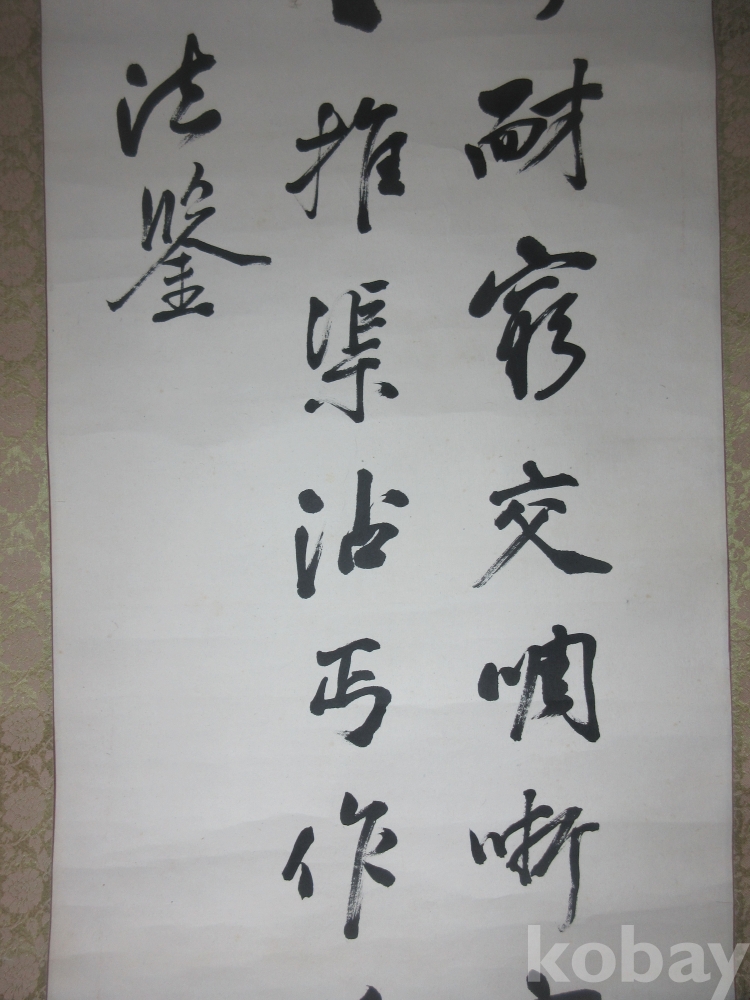 耐窮交啁哳
推渠沾丐作
法鑒
kobay